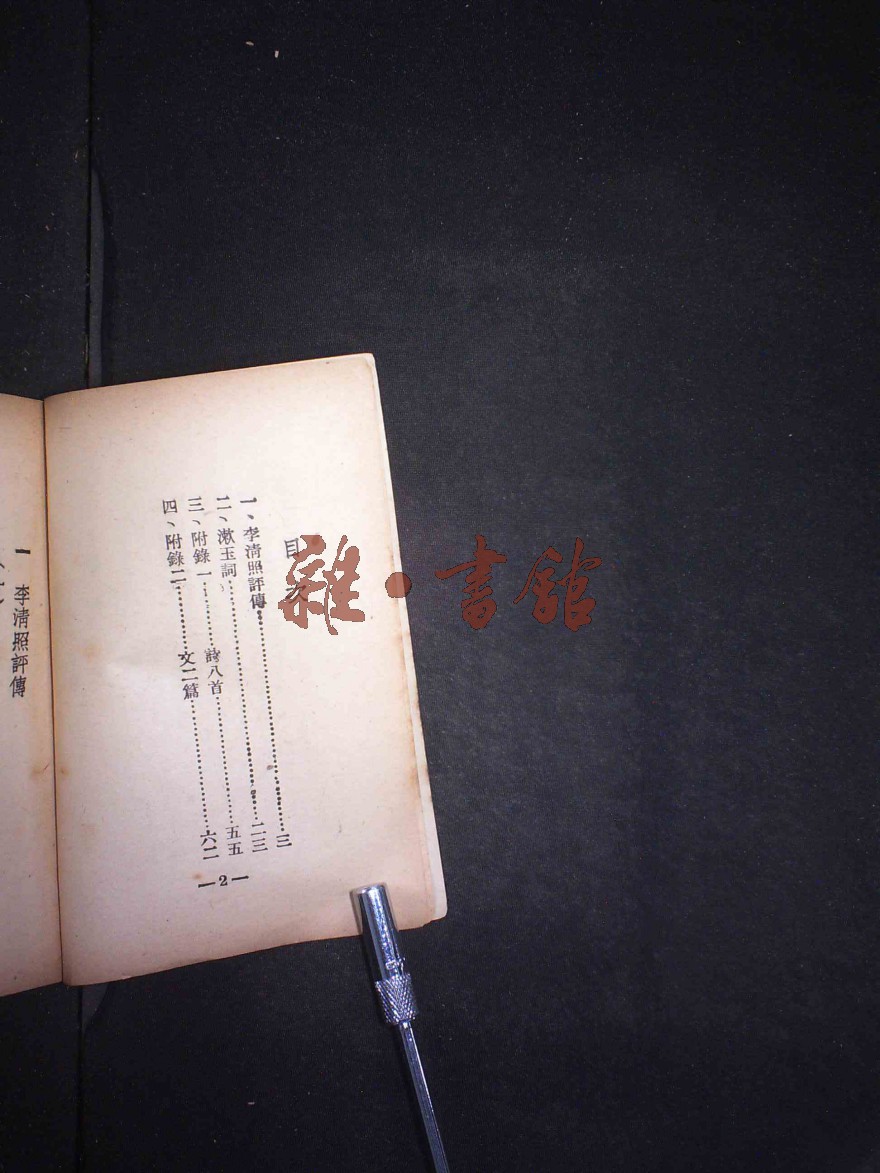 目次
一、李清照評傳…………三
二、漱玉詞…………二三
三、附錄一…………詩八首…………五五
四、附錄二…………文二篇…………六二
—2—
一 李清照評傳
雜·書館